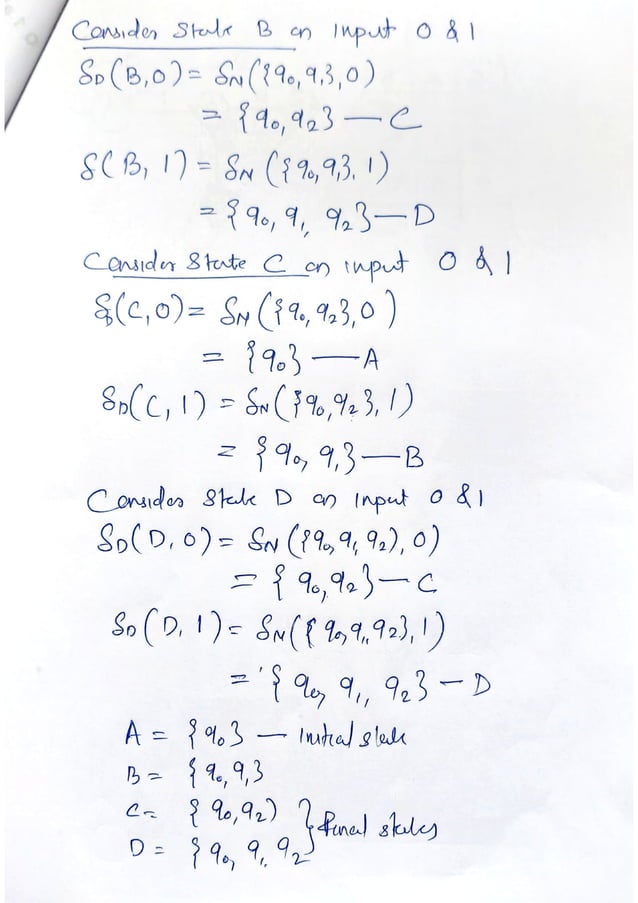 Consider State B on Input 0 & 1
δD(B,0) = δN({q0,q1},0)
= {q0,q2} — C
δ(B, 1) = δN ({q0,q1}. 1)
= {q0, q1, q2} — D
Consider State C on input 0 & 1
δD(C,0) = δN ({q0,q2},0)
= {q0} — A
δD(C, 1) = δN ({q0,q2}, 1)
= {q0, q1} — B
Consider State D on Input 0 & 1
δD(D, 0) = δN ({q0, q1, q2), 0)
= {q0,q2} — C
δD(D, 1) = δN({q0,q1,q2},1)
= {q0, q1, q2} — D
A = {q0} — Initial state
B = {q0,q1}
C = {q0,q2) } final states
D = {q0, q1, q2